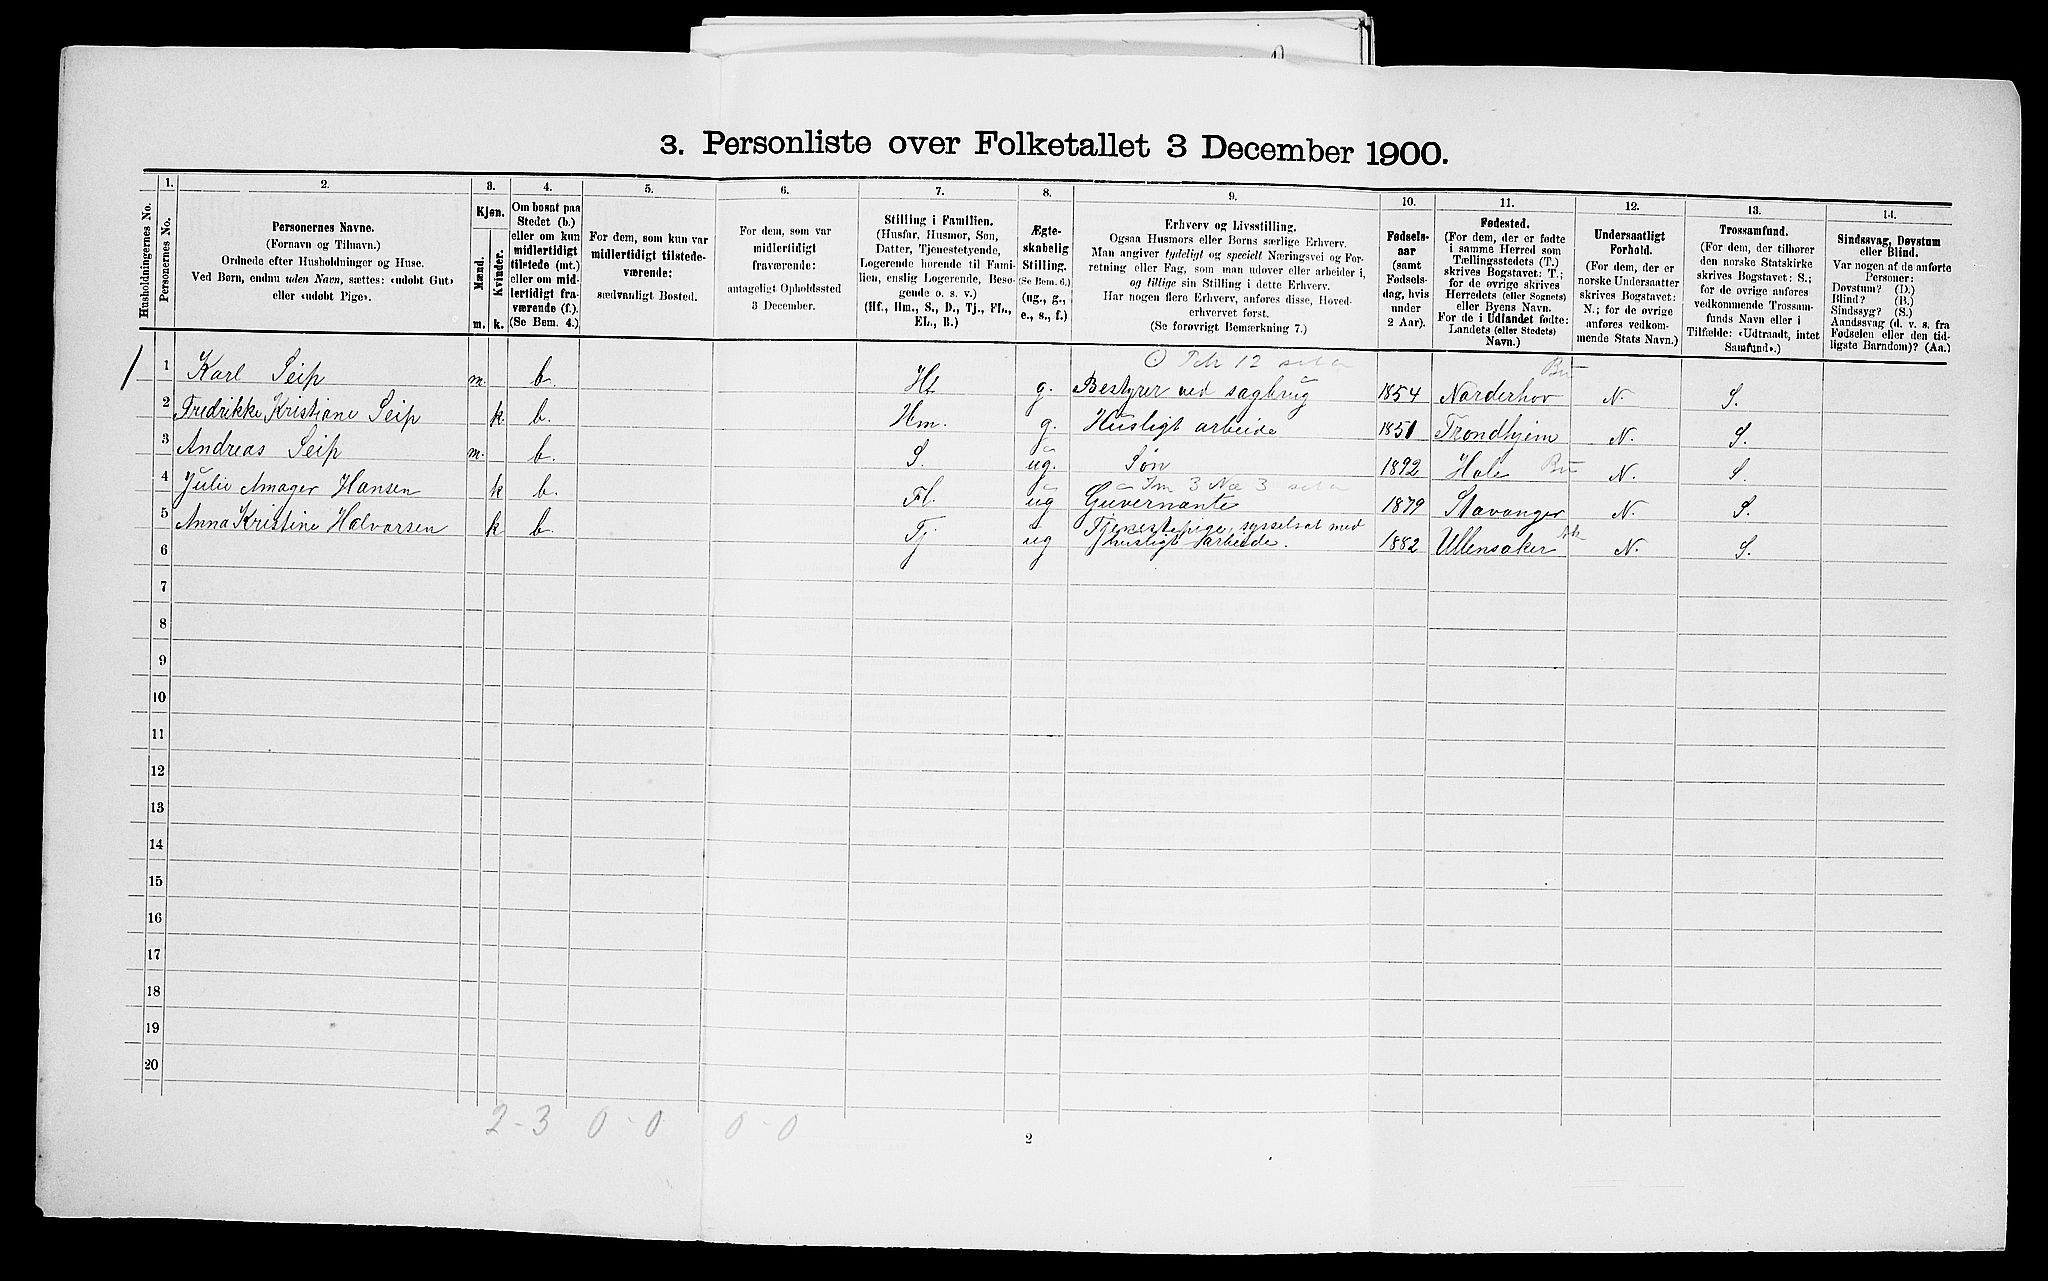 3. Personliste over Folketallet 3 December 1900.
Husholdningernes No.
1.
Personernes No.
2.
Personernes Navne.
(Fornavn og Tilnavn.)
Ordnede efter Husholdninger og Huse.
Ved Børn, endnu uden Navn, sættes: «udøbt Gut»
eller «udøbt Pige».
3.
Kjøn.
Mænd.
Kvinder.
m.
k.
4.
Om bosat paa
Stedet (b.)
eller om kun
midlertidigt
tilstede (mt.)
eller om mid-
lertidigt fra-
værende (f.).
(Se Bem. 4.)
5.
For dem, som kun var
midlertidigt tilstede-
værende:
sædvanligt Bosted.
6.
For dem, som var
midlertidigt
fraværende:
antageligt Opholdssted
3 December.
7.
Stilling i Familien.
(Husfar, Husmor, Søn,
Datter, Tjenestetyende,
Logerende hørende til Fami-
lien, enslig Logerende, Besø-
gende o. s. v.)
(Hf., Hm., S., D., Tj., FL.,
EL., B.)
8.
Ægte-
skabelig
Stilling.
(Se Bem. 6.)
(ug., g.,
e., s., f.)
9.
Erhverv og Livsstilling.
Ogsaa Husmors eller Børns særlige Erhverv.
Man angiver tydeligt og specielt Næringsvei og For-
retning eller Fag, som man udøver eller arbeider i,
og tillige sin Stilling i dette Erhverv.
Har nogen flere Erhverv, anføres disse, Hoved-
erhvervet først.
(Se forøvrigt Bemærkning 7.)
10.
Fødsels-
aar
(samt
Fødsels-
dag, hvis
under
2 Aar).
11.
Fødested.
(For dem, der er fødte
i samme Herred som
Tællingsstedets (T.)
skrives Bogstavet: T.;
for de øvrige skrives
Herredets (eller Sognets)
eller Byens Navn.
For de i Udlandet fødte:
Landets (eller Stedets)
Navn.)
12.
Undersaatligt
Forhold.
(For dem, der er
norske Undersaatter
skrives Bogstavet:
N.; for de øvrige
anføres vedkom-
mende Stats Navn.)
13.
Trossamfund.
(For dem, der tilhører
den norske Statskirke
skrives Bogstavet: S.;
for de øvrige anføres
vedkommende Trossam-
funds Navn eller i
Tilfælde: «Udtraadt, intet
Samfund».)
14.
Sindssvag, Døvstum
eller Blind.
Var nogen af de anførte
Personer:
Døvstum? (D.)
Blind? (B.)
Sindssyg? (S.)
Aandssvag (d. v. s. fra
Fødselen eller den tid-
ligste Barndom)? (Aa.)
12 Bu
1 1 Karl Seip m. b. Hf g. Bestyrer ved sagbrug 1854 Norderhov N. S.
2 Fredrikke Kristiane Seip k b. Hm. g. Husligt arbeide 1851 Trondhjem N. S.
3 Andreas Seip m. b. S. ug. Søn 1892 Hole Bu N. S.
3 3
4 Julie Amager Hansen k b. Fl. ug Guvernante 1879 Stavanger N. S.
5 Anna Kristine Halvorsen k b. Tj ug Tjenestepige, sysselsat med husligt arbeide. 1882 Ullensaker Ak N. S.
6
7
8
9
10
11
12
13
14
15
16
17
18
19
20
2-3 0-0 0-0
2